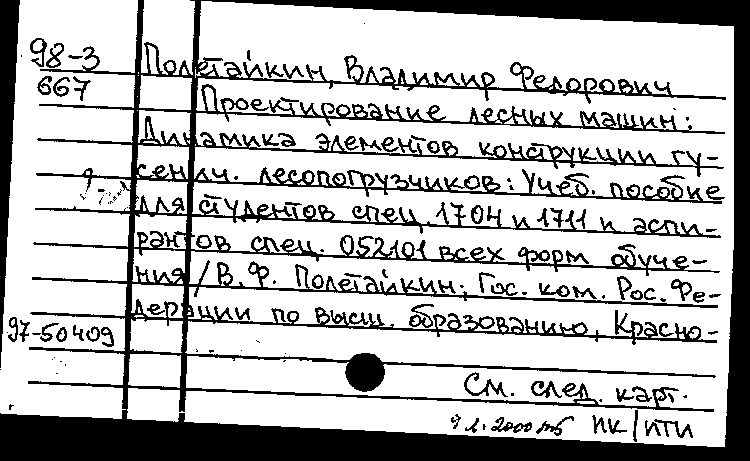 98-3
667
Полетайкин, Владимир Федорович
Проектирование лесных машин:
Динамика элементов конструкции гу-
сенич. лесопогрузчиков: Учеб. пособие
для студентов спец. 1704 и 1711 и аспи-
рантов спец. 052101 всех форм обуче-
ния / В.Ф. Полетайкин; Гос. ком. Рос. Фе-
дерации по высш. образованию, Красно-
97-50409
См. след. карт.
ПК/ПТИ